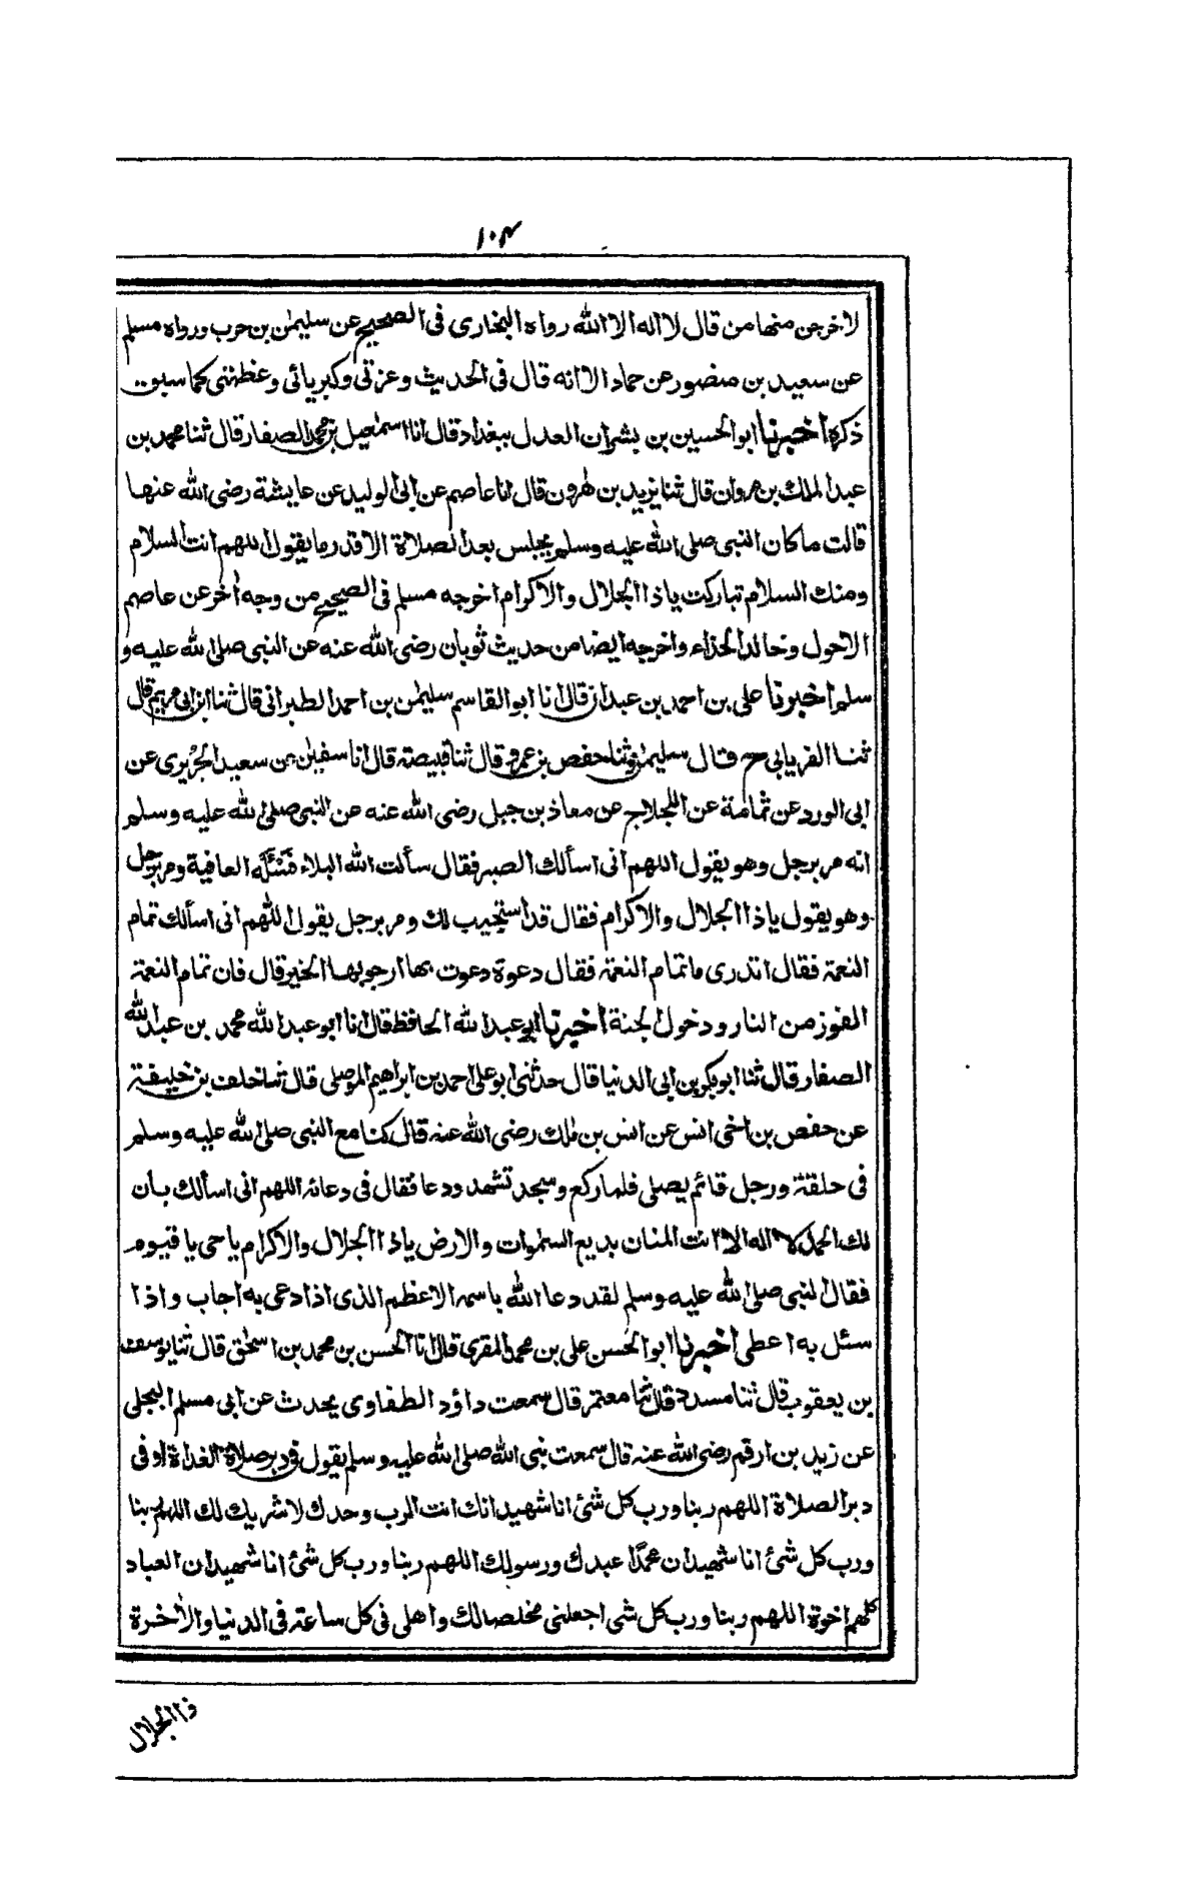 ١٠٤
لاخرجن منها من قال لا اله الا الله رواه البخارى فى الصحيح عن سليمٰن بن حرب ورواه مسلم
عن سعيد بن منصور عن حماد الا انه قال فى الحديث وعزتى وكبريائى وعظمتى كما سبقت
ذكره اخبرنا ابو الحسين بن بشران العدل ببغداد قال انا اسمٰعيل بن محمد الصفار قال ثنا محمد بن
عبد الملك بن مروان قال ثنا يزيد بن هٰرون قال انا عاصم عن ابى الوليد عن عايشة رضى الله عنها
قالت ما كان النبى صلى الله عليه وسلم يجلس بعد الصلاة الا قدر ما يقول اللهم انت السلام
ومنك السلام تباركت يا ذا الجلال والاكرام اخرجه مسلم فى الصحيح من وجه اٰخر عن عاصم
الاحول وخالد الحذاء واخرجه ايضا من حديث ثوبان رضى الله عنه عن النبى صلى الله عليه و
سلم اخبرنا على بن احمد بن عبدان قال انا ابو القاسم سليمٰن بن احمد الطبرانى قال ثنا ابن ابى مريم قال
ثنا الفريابى ح قال سليمٰن وثنا حفص بن عمر قال ثنا قبيصة قال انا سفيٰن عن سعيد الجُرَيرى عن
ابى الورد عن ثمامة عن اللجلاج عن معاذ بن جبل رضى الله عنه عن النبى صلى الله عليه وسلم
انه مر برجل وهو يقول اللهم انى اسألك الصبر فقال سألت الله البلاء فَسَئَلَه العافية ومر برجل
وهو يقول يا ذا الجلال والاكرام فقال قد استجيب لك ومر برجل يقول اللّٰهم انى اسألك تمام
النعمة فقال اتدرى ما تمام النعمة فقال دعوة دعوت بها ارجو بها الخير قال فان تمام النعمة
الفوز من النار ودخول الجنة اخبرنا ابو عبد الله الحافظ قال انا ابو عبد الله محمد بن عبد الله
الصفار قال ثنا ابو بكر بن ابى الدنيا قال حدثنى ابو على احمد بن ابراهيم الموصلى قال ثنا خلف بن خليفة
عن حفص بن اخى انس عن انس بن مٰلك رضى الله عنه قال كنا مع النبى صلى الله عليه وسلم
فى حلقة ورجل قائم يصلى فلما ركع وسجد تشهد ودعا فقال فى دعائه اللهم انى اسألك بان
لك الحمد لا اله الا انت المنان بديع السمٰوات والارض يا ذا الجلال والاكرام يا حى يا قيوم
فقال النبى صلى الله عليه وسلم لقد دعا الله باسمه الاعظم الذى اذا دعى به اجاب واذا
سئل به اعطى اخبرنا ابو الحسن على بن محمد المقرى قال انا الحسن بن محمد بن اسحٰق قال ثنا يوسف
بن يعقوب قال ثنا مسدد قال ثنا معتمر قال سمعت داؤد الطفاوى يحدث عن ابى مسلم البجلى
عن زيد بن ارقم رضى الله عنه قال سمعت نبى الله صلى الله عليه وسلم يقول فى دبر صلاة الغداة او فى
دبر الصلاة اللهم ربنا ورب كل شئ انا شهيد انك انت الرب وحدك لا شريك لك اللهم ربنا
ورب كل شئ انا شهيد ان محمدًا عبدك ورسولك اللهم ربنا ورب كل شئ انا شهيد ان العباد
كلهم اخوة اللهم ربنا ورب كل شى اجعلنى مخلصا لك واهلى فى كل ساعة فى الدنيا والاٰخرة
ذا الجلال